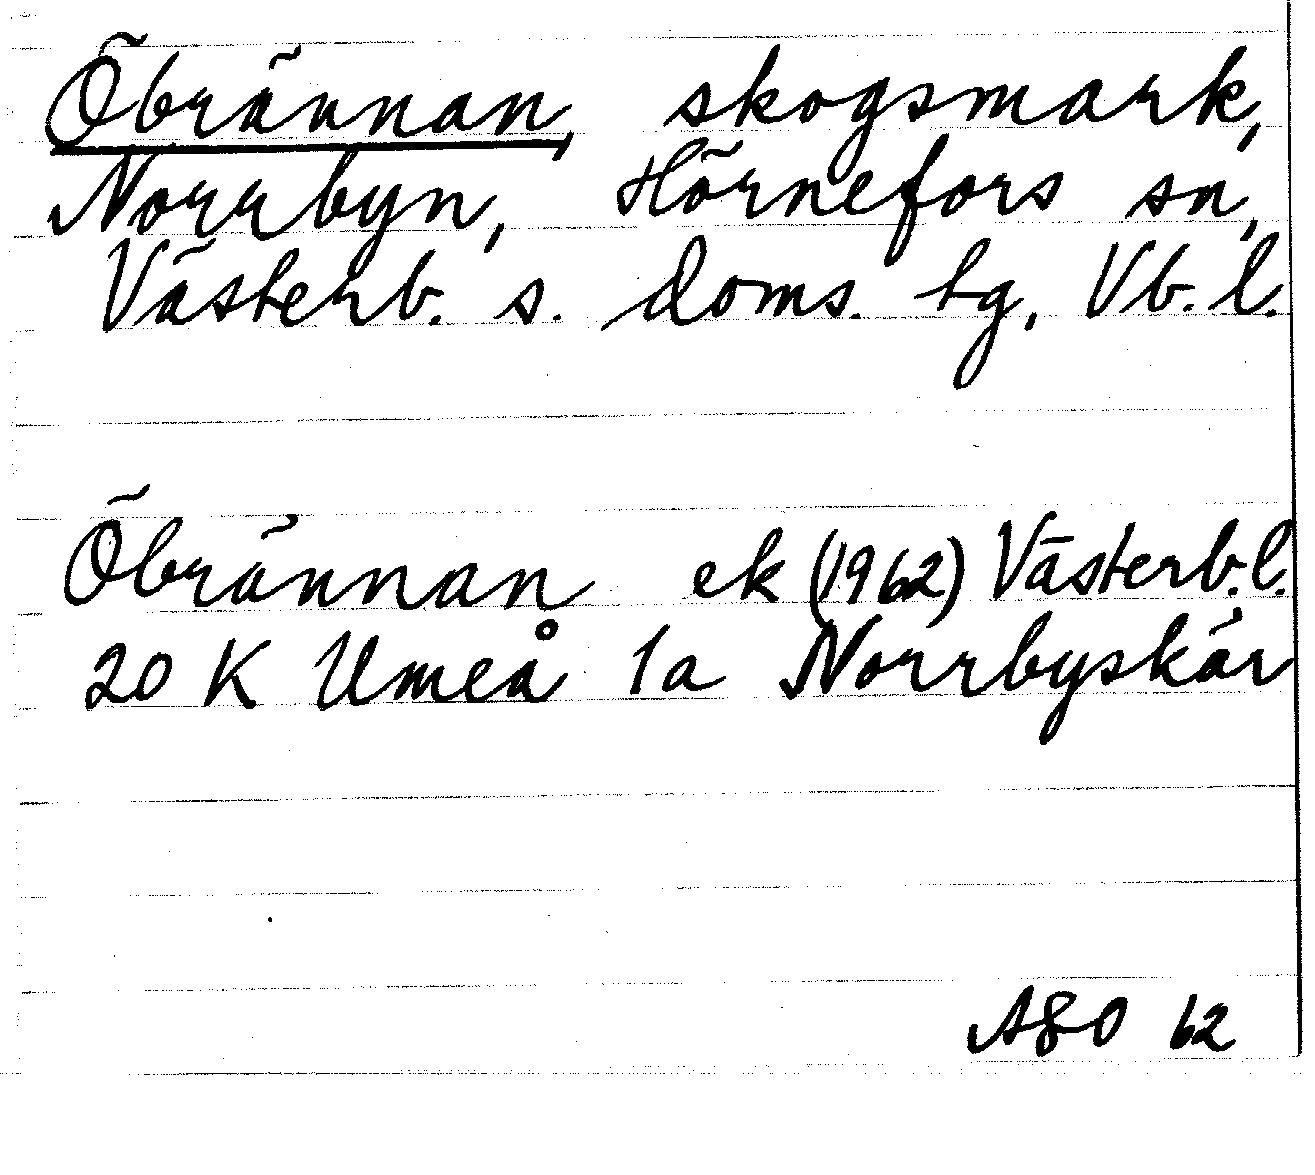 Öbrännan, skogsmark,
Norrbyn, Hörnefors sn,
Västerb. s. doms. tg, Vb. l.
Öbrännan ek (1962) Västerb. l.
20 K Umeå 1a Norrbyskär
62